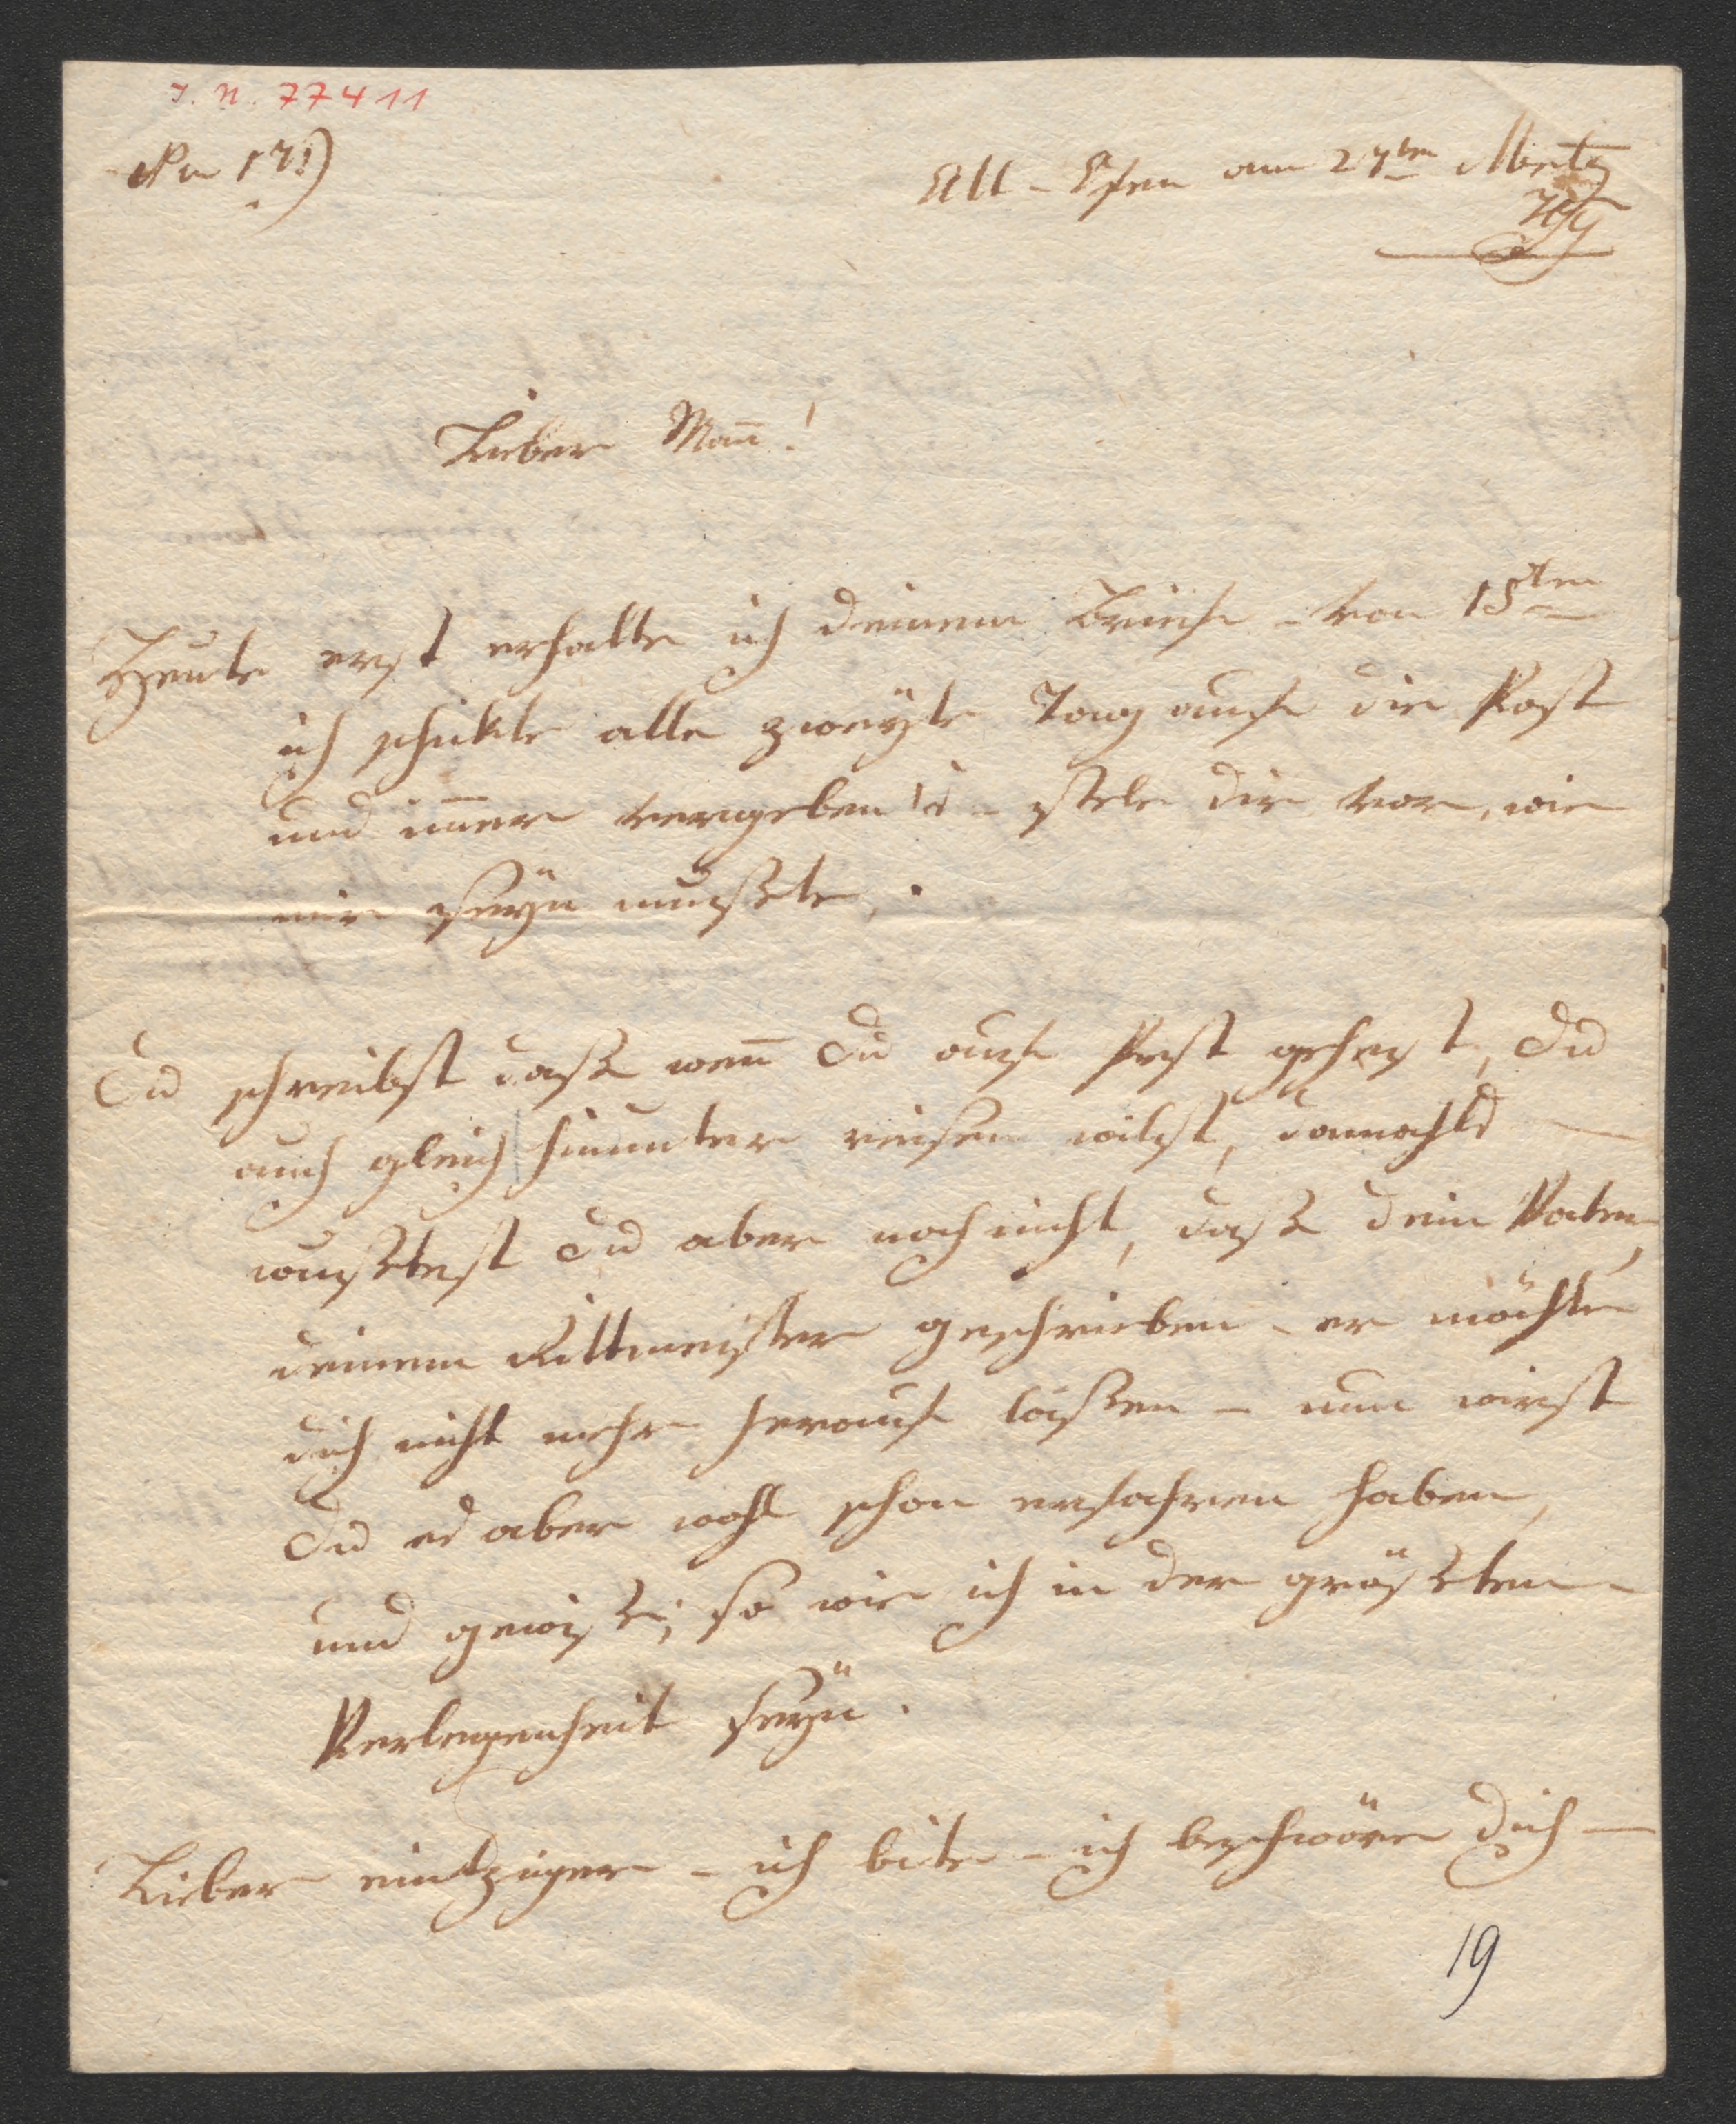 I. N. 77411
Nro 17!)
Alt-Ofen am 27ten Mertz
799
Lieber Mañ!
Heute erst erhalte ich deinem Briefe - von 15ten
ich schickte alle zweÿte Tag aufs die Post
und im̃er vergebens - stele dir vor, wie
mir seÿn mußte.
Du schreibst daß weñ Du aufs Pest gehest, Du
auch gleich hinunter reisen wilst, damahls -
wußtest Du aber noch nicht, daß dein Vater,
deinem Rittmeister geschrieben - er möchte
dich nicht mehr herauf laßen - nun wirst
Du es aber wohl schon erfahren haben,
und gewiß, so wie ich in der größten
Verlegenheit seÿn.
Lieber eintziger - ich bite - ich beschwöre dich -
19